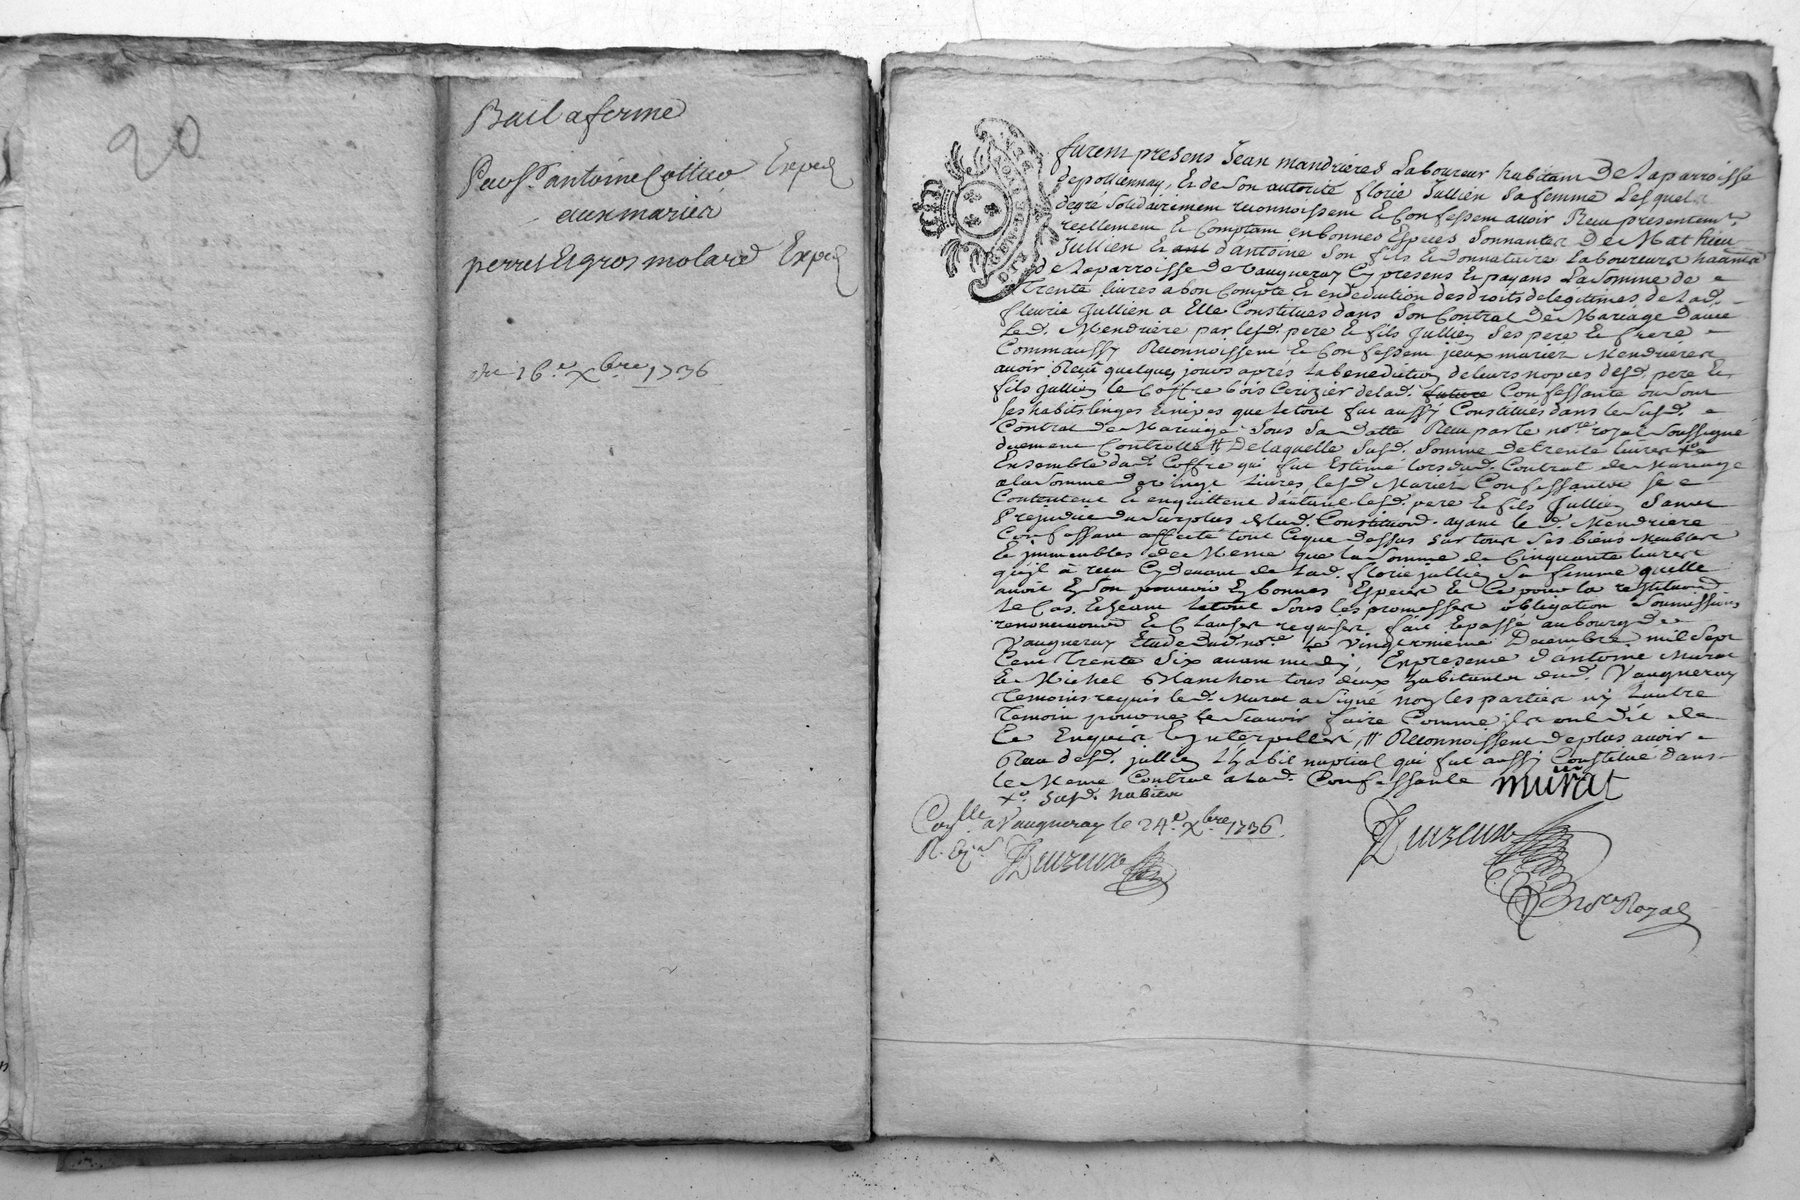 20
Bail a ferme
Par Sr antoine Collieo Exped
aux mariés
perret et gros molard Exped
du 16.e Xbre 1736
GEN. DE LYO
furent presens Jean mandrieres Laboureur habitant De La parroisse
de pollionnay, Et de Son autorité florie Jullien Sa femme Lesquels
de gré Solidairement reconnoissent Et Confessent avoir Receu presentemt
reellement Et Comptant en bonnes Especes Sonnantes De Mathieu
Jullien Et ant d'antoine Son fils Et Donnataire Laboureurs
de La parroisse de vaugneray Cy presens Et payans La Somme de
Trente livres a bon Compte Et en deduction des droits de legitimes de Lad.
fleurie Jullien a Elle Constitues dans Son Contrat De Mariage avec
Le d. Mendriere par lesd. pere Et fils Jullien Ses pere Et frere
Comm'aussy Reconnoissent Et Confessent jceux mariez Mendrieres
avoir Receu quelques jours après La benediction de leurs nopces desd. pere Et
fils jullien le Coffre bois Cerizier de lad. future Confessante ou Sont
Ses habits linges Et nipes que le tout fut aussy Constitués dans le Susd.
Contrat De Mariage Sous Sa datte Receu par le nore royal Soussigné
duement Controllé # De laquelle Susd. Somme de trente livres
Ensemble dud. Coffre qui fut Estimé lors dud. Contrat de Mariage
a la Somme de vingt Livres, lesd. Mariez Confessants Se
Contentent Et en quittent d'autant lesd. pere Et fils Jullien Sans
Prejudice du Surplus de lad. Constitution. ayant le d. Mendriere
Confessant affecté tout Ce que dessus Sur tous Ses biens Meubles
Et jmmeubles de Meme que la Somme de Cinquante livres
qu'jl à receu Cy devant de Lad. florie jullien Sa femme qu'elle
avoit En Son pouvoir En bonnes Especes Et Ce pour la restitution
le Cas Echeant le tout Sous les promesses obligation Soumissions
renonciations Et Clauses requises fait Et passé au bourg de
Vaugneray Etude dud. nore le vingt Decembre mil Sept
Cent Trente Six avant midy, En presence d'antoine Murat
Et Michel Blanchon tous deux habitants dud. Vaugneray
Temoins requis le d. Murat a Signé non les parties ny L'autre
Temoin pour ne le Scavoir faire Comme jls ont dit de
Ce Enquis Et Interpellés, # Reconnoissent de plus avoir
Receu desd. jullien L'habit nuptial qui fut aussy Constitué dans
le Meme Contrat a Lad. Confessante murat
Susd. habits
Conlle a Vaugneray le 24.e Xbre 1736
nore Royal